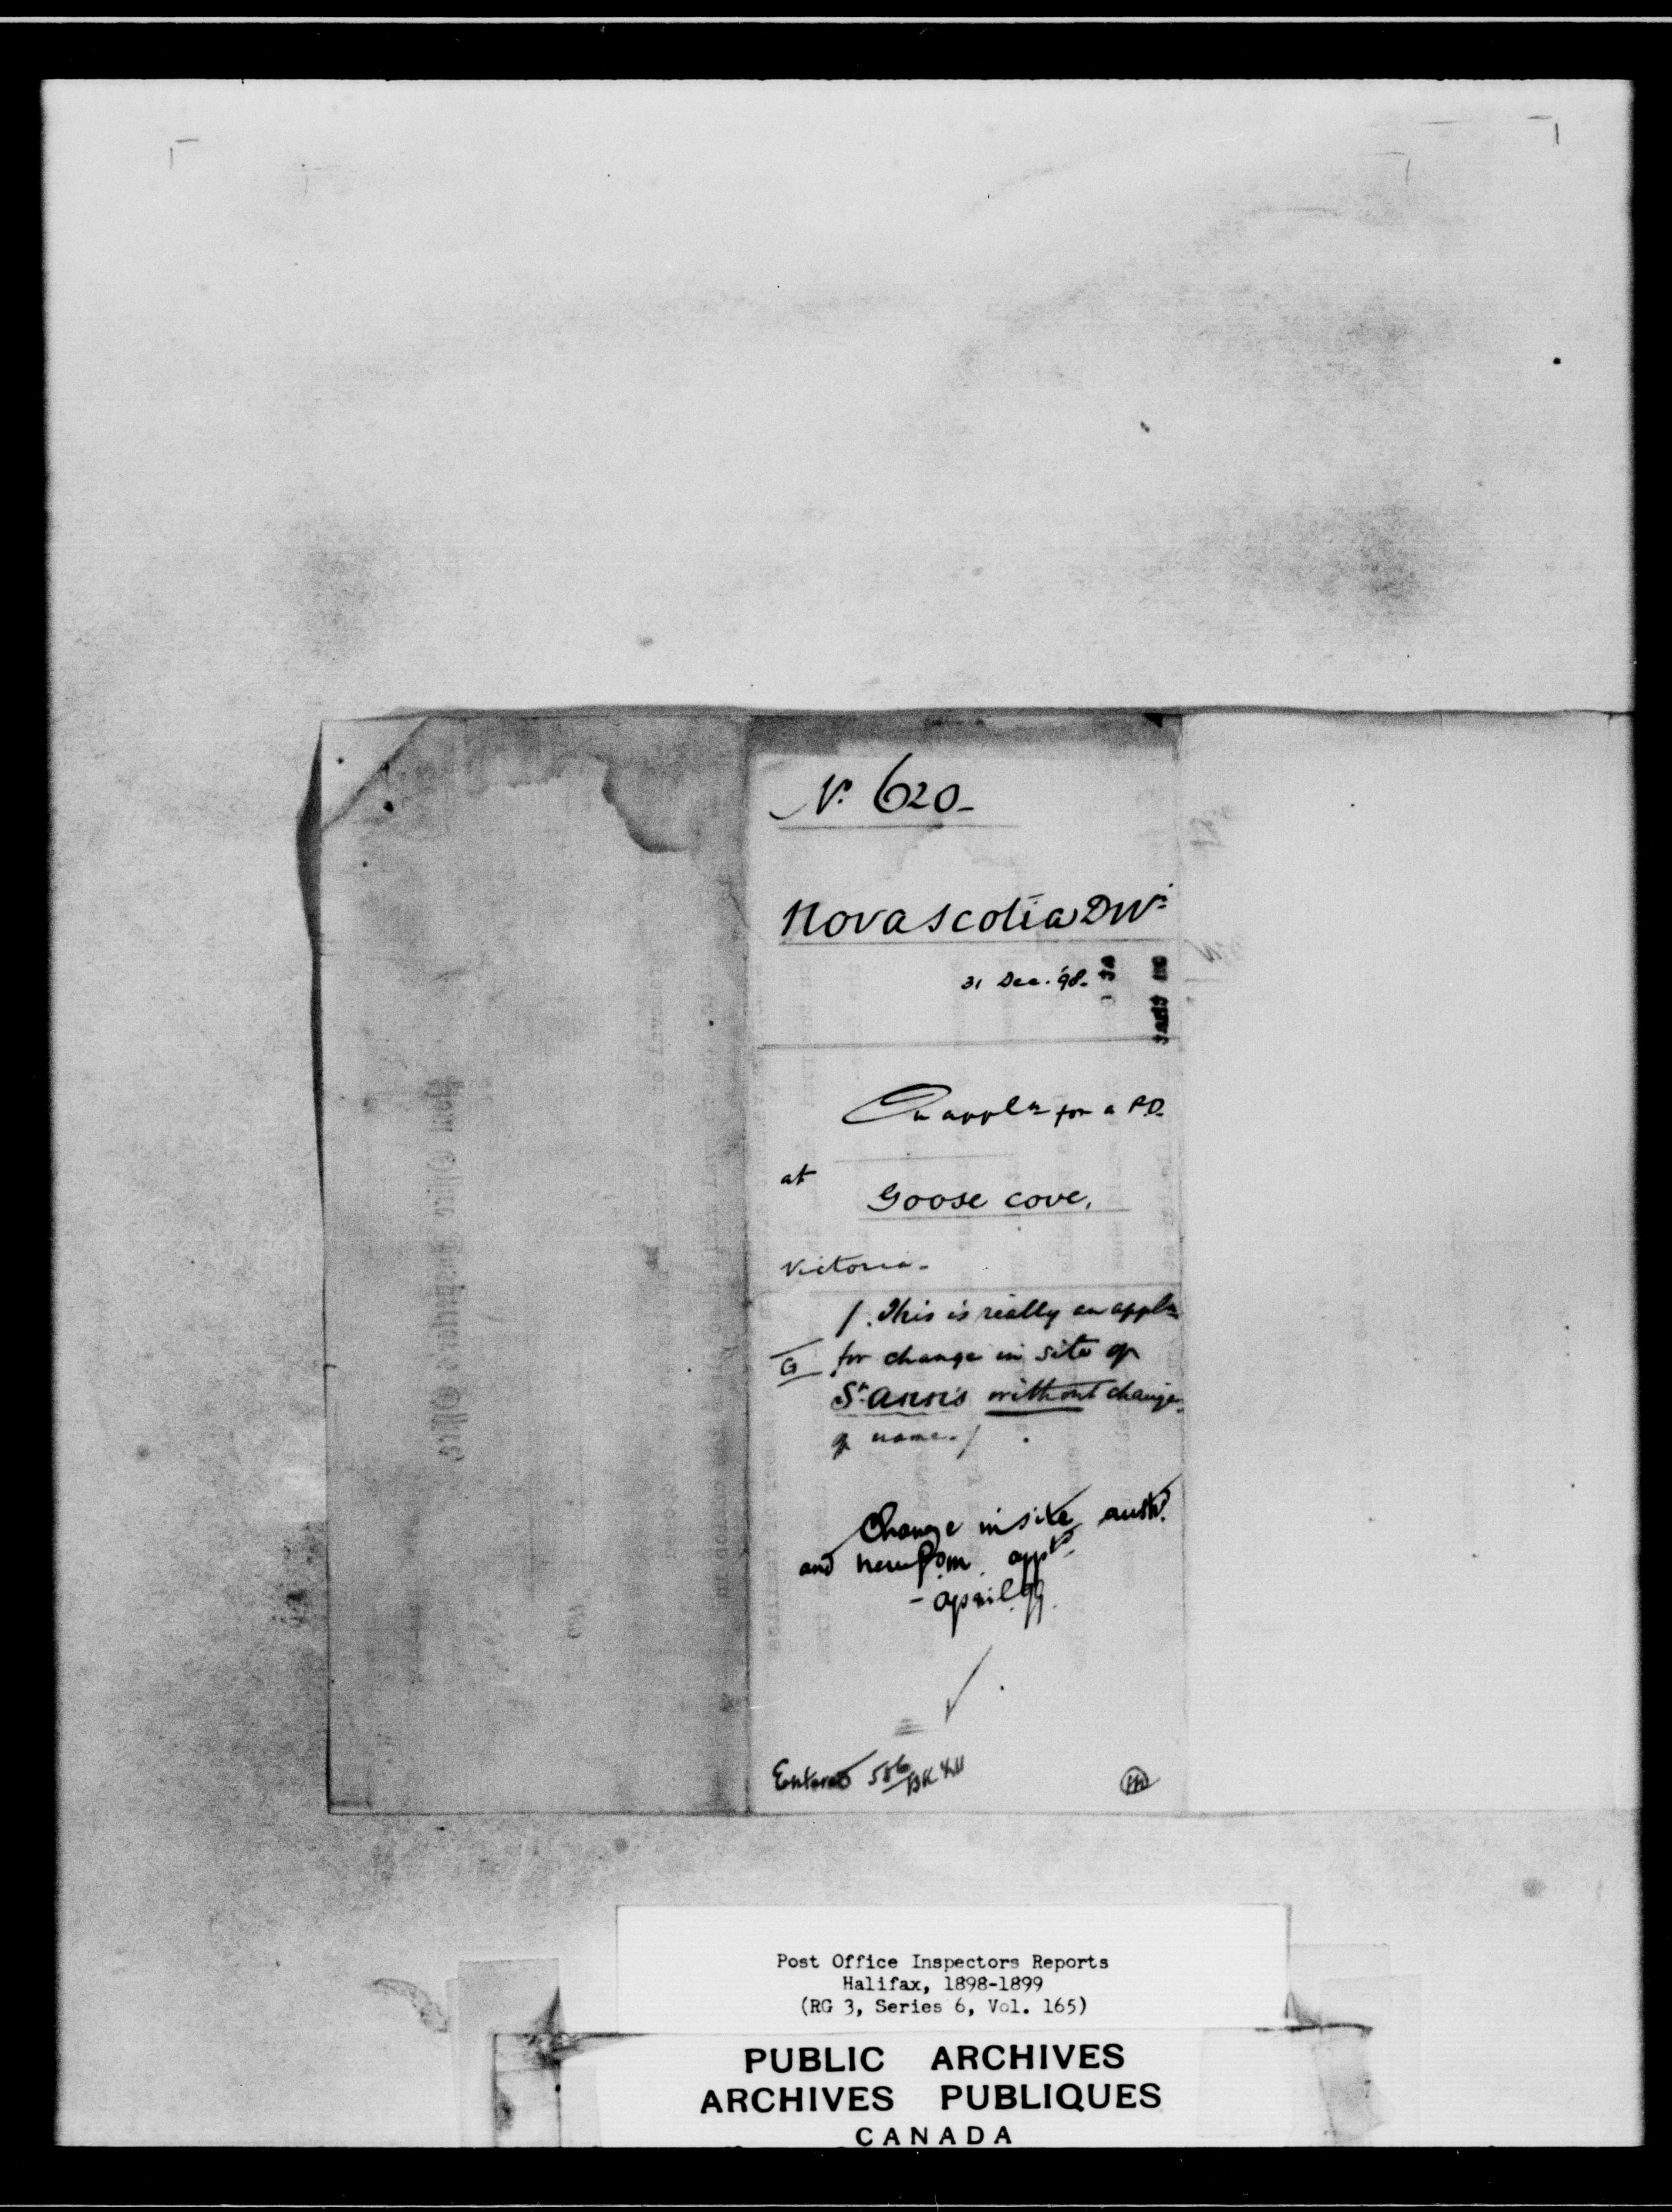 No. 620-
Nova Scotia Divn
31 Dec. '98.
On appln for a P.O.
at
Goose Cove,
Victoria-
/. This is really an appln
G for change in site of
St. Ann's without change
of name./
Change in site auth'd
and new P.m. appt'd
- April 99.
Entered 586 BK
Post Office Inspectors Reports
Halifax, 1898-1899
(RG 3, Series 6, Vol. 165)
PUBLIC ARCHIVES
ARCHIVES PUBLIQUES
CANADA